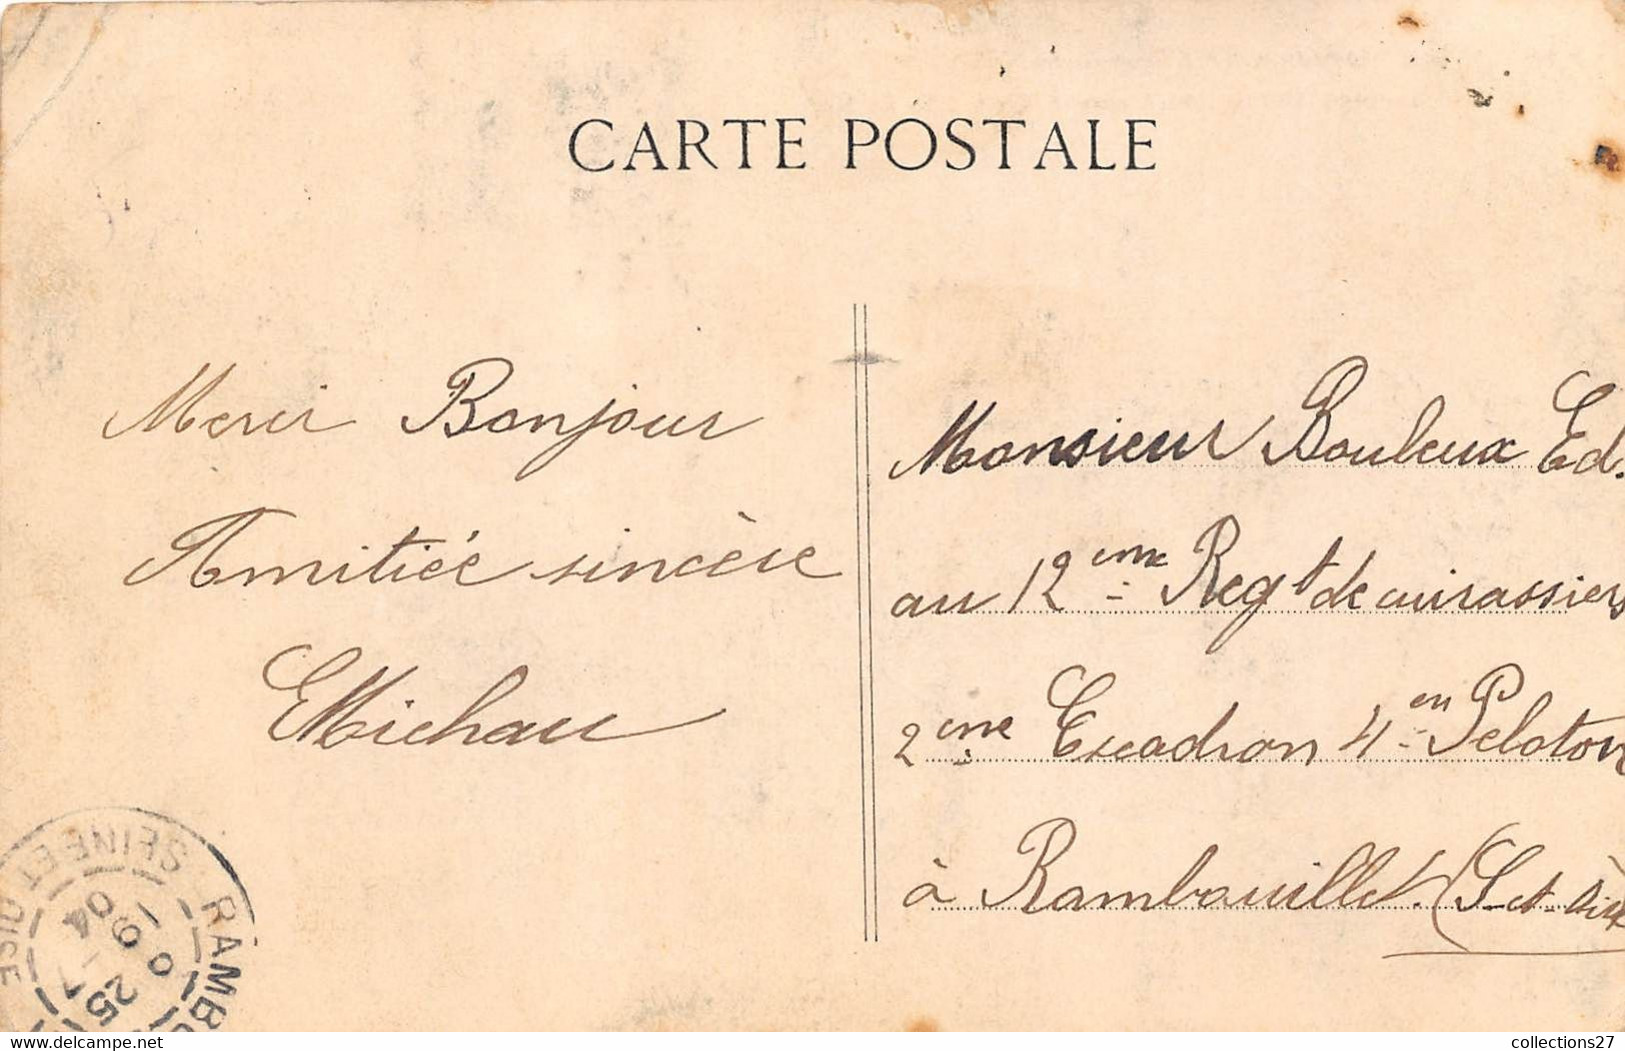 CARTE POSTALE
Merci Bonjour
Amitiée sincère
EMichau
Monsieur Bouleux Ed.
au 12ème Regt de cuirassiers
2ème Escadron 4en Peloton
à Rambouillet. (S-et-Oise
RAMBO
SEINE ET OISE
25 -1
19 04
collections27